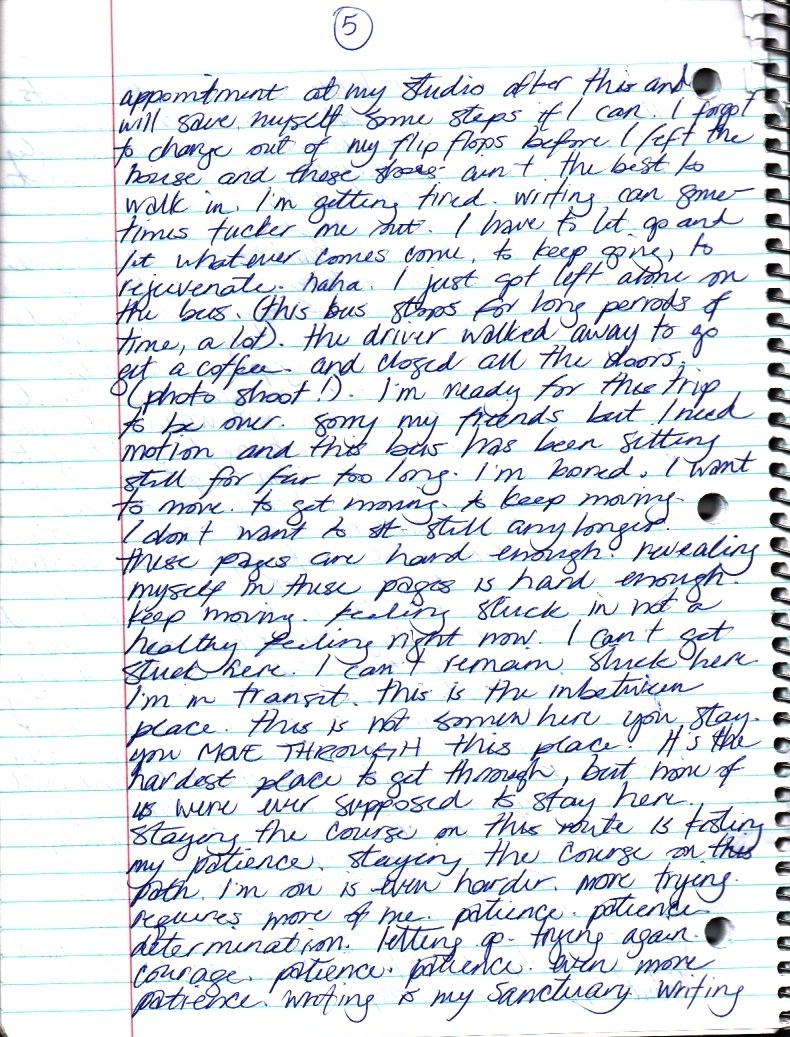 5
appointment at my studio after this and
will save myself some steps if I can. I forgot
to change out of my flip flops before I left the
house and these shoes ain't the best to
walk in. I'm getting tired. writing can some-
times tucker me out. I have to let go and
let whatever comes come, to keep going, to
rejuvenate. haha. I just got left alone on
the bus. (this bus stops for long periods of
time, a lot). the driver walked away to go
get a coffee. and closed all the doors.
(photo shoot!). I'm ready for this trip
to be over. sorry my friends but I need
motion and this bus has been sitting
still for far too long. I'm bored. I want
to move. to get moving. to keep moving.
I don't want to sit still any longer.
these pages are hard enough. revealing
myself in these pages is hard enough.
keep moving. feeling stuck is not a
healthy feeling right now. I can't get
stuck here. I can't remain stuck here
I'm in transit. this is the inbetween
place. this is not somewhere you stay.
you MOVE THROUGH this place. It's the
hardest place to get through, but none of
us were ever supposed to stay here.
staying the course on this route is testing
my patience. staying the course on this
path I'm on is even harder. more trying.
requires more of me. patience. patience.
determination. letting go. trying again.
courage. patience. patience. even more
patience. writing is my sanctuary writing